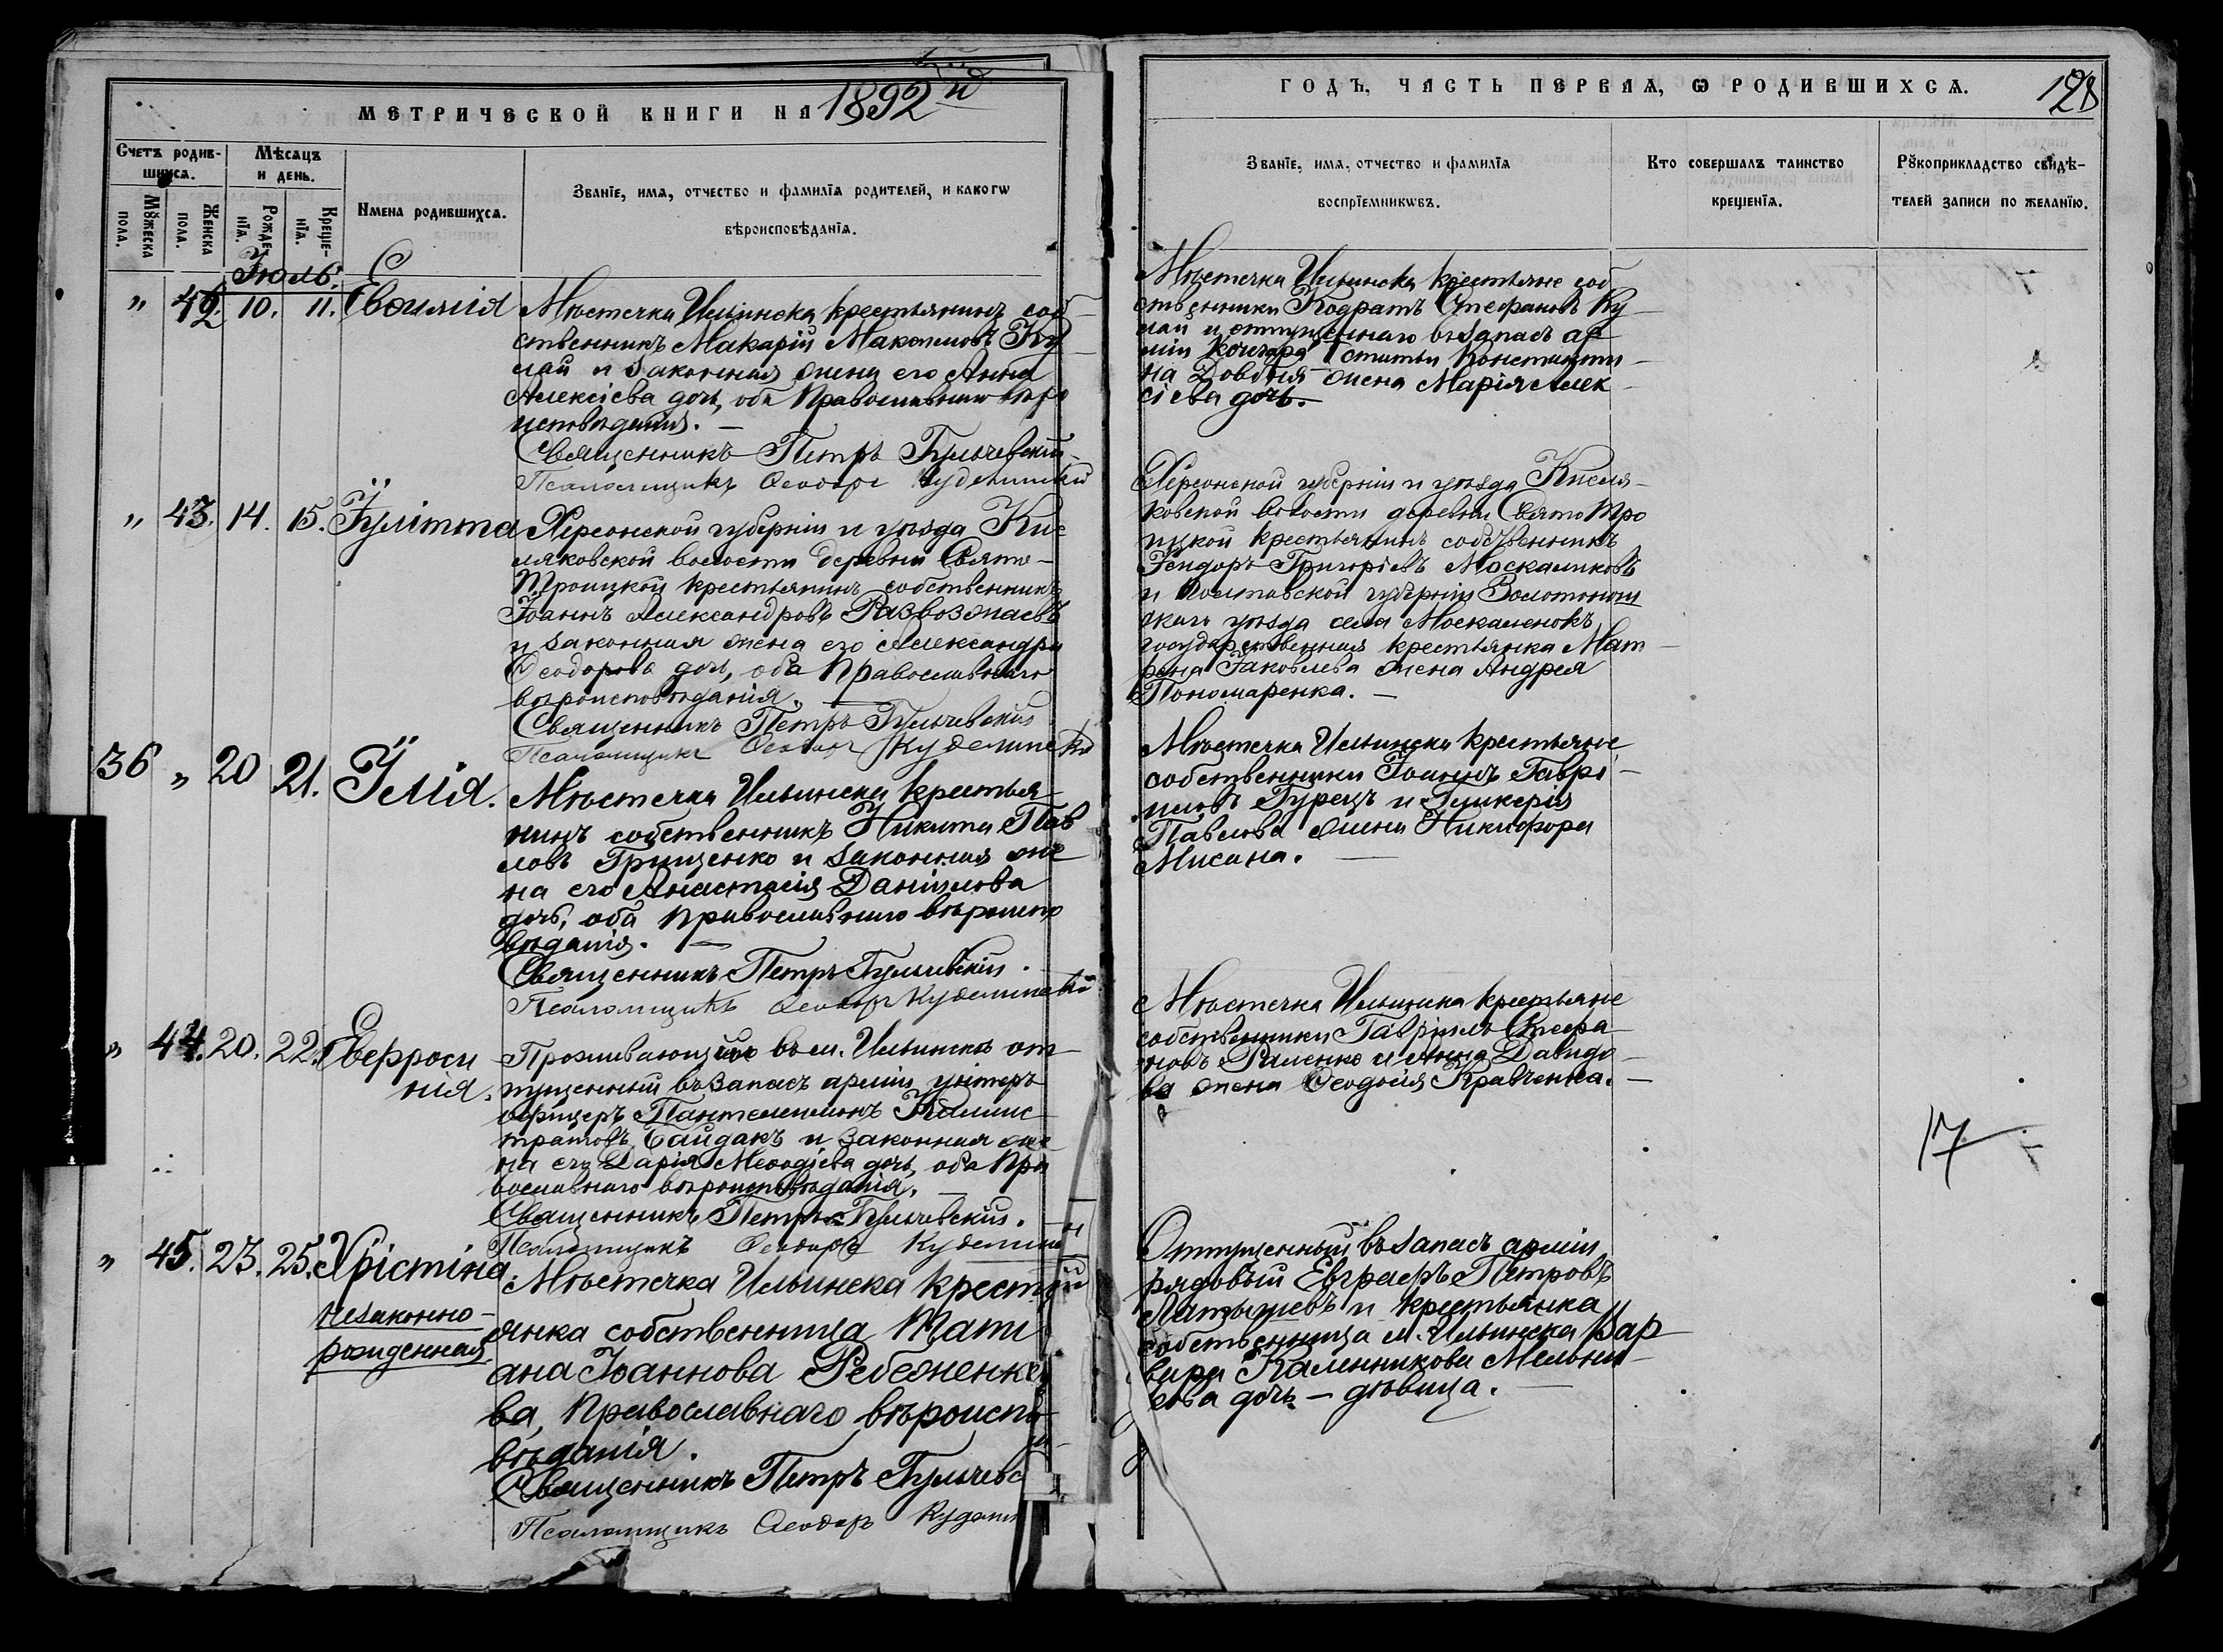 МЕТРИЧЕСКОЙ КНИГИ НА 1892й
Счетъ родив-
шихся.
Мѣсяцъ
и день.
Имена родившихся.
Званіе, имя, отчество и фамилія родителей, и какогѡ
вѣроисповѣданія.
Мꙋжеска
пола.
Женска
пола.
Рожде-
нія.
Креще-
нія.
Іюль.
" 42. 10. 11. Евѳимія
Мѣстечка Ильинска крестьянинъ соб-
ственникъ Макарій Макс Ку-
лай и законная жена его Анна
Алексіева дочь, оба Православнаго вѣро
исповѣданія. —
Священникъ Петръ Бульчевскій
Псаломщикъ Ѳеодоръ Куделинскій
" 43. 14. 15. Іулітта
Херсонской губерніи и уѣзда Кис-
ляковской волости деревни Свято-
Троицкой крестьянинъ собственникъ
Іоаннъ Александровъ Развозжаевъ
и законная жена его Александра
Ѳеодорова дочь, оба Православнаго
вѣроисповѣданія.
Священникъ Петръ Бульчевскій
Псаломщикъ Ѳеодоръ Куделинскій
36 " 20 21. Илія.
Мѣстечка Ильинска крестья-
нинъ собственникъ Никита Пав
ловъ Грищенко и законная же-
на его Анастасія Даніилова
дочь, оба православнаго вѣроиспо
вѣданія. —
Священникъ Петръ Бульчевскій.
Псаломщикъ Ѳеодоръ Куделинскій
" 44. 20. 22. Евфроси
нія.
Проживающій въ м. Ильинскѣ от-
пущенный въ запасъ арміи унтеръ
офицеръ Пантелеимонъ Каллис-
тратовъ Байдакъ и законная же-
на его Дарія Меѳодіева дочь, оба Пра
вославнаго вѣроисповѣданія. —
Священникъ Петръ Бульчевскій.
Псаломщикъ Ѳеодоръ Куделин
" 45. 23. 25. Хрістіна
незаконно-
рожденная
Мѣстечка Ильинска крест
янка собственница Тати
ана Іоаннова Ребеженко
ва, Православнаго вѣроиспо
вѣданія.
Священникъ Петръ Бульчевс
Псаломщикъ Ѳеодоръ Кудели
ГОДЪ, ЧАСТЬ ПЕРВАЯ, Ѡ РОДИВШИХСЯ.
128
Званіе, имя, отчество и фамилія
воспріемникѡвъ.
Кто совершалъ таинство
крещенія.
Рꙋкоприкладство свидѣ-
телей записи по желанію.
Мѣстечка Ильинска крестьяне соб
ственники Кодратъ Стефановъ Ку-
лай и отпущеннаго въ запасъ ар
міи Константи-
на Довбня жена Марія Алек-
сіева дочь.
Херсонской губерніи и уѣзда Кисля-
ковской волости деревни Свято Тро
ицкой крестьянинъ собственникъ
Григоріевъ Москаликовъ
и Полтавской губерніи Золотонош
скаго уѣзда села Москаленокъ
государственная крестьянка Мат-
рона Іаковлева жена Андрея
Пономаренка. —
Мѣстечка Ильинска крестьяне
собственники Іоаннъ Гаврі-
иловъ Гурецъ и Гликерія
Павлова жена Никифора
Мисана. —
Мѣстечка Ильинска крестьяне
собственники Гавріилъ Стефа-
новъ Раленко и Анна Давидо-
ва жена Ѳеодосія Кравченка. —
17
Отпущенный въ запасъ арміи
рядовый Евграфъ Петровъ
Латышевъ и крестьянка
собственница м. Ильинска Вар
вара Калинникова Мельни-
ова дочь — дѣвица. —